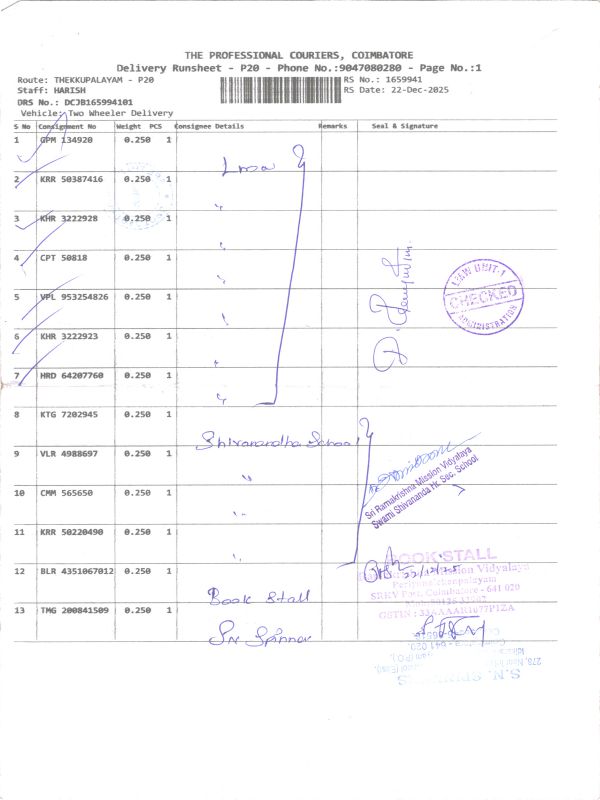 THE PROFESSIONAL COURIERS, COIMBATORE
Delivery Runsheet - P20 - Phone No.:9047080280 - Page No.:1
Route: THEKKUPALAYAM - P20
RS No.: 1659941
Staff: HARISH
RS Date: 22-Dec-2025
DRS No.: DCJB165994101
Vehicle: Two Wheeler Delivery
S No Consignment No Weight PCS Consignee Details Remarks Seal & Signature
1 GPM 134920 0.250 1
2 KRR 50387416 0.250 1
3 KHR 3222928 0.250 1
4 CPT 50818 0.250 1
5 VPL 953254826 0.250 1
LMW UNIT-1
CHECKED
ADMINISTRATION
6 KHR 3222923 0.250 1
7 HRD 64207760 0.250 1
8 KTG 7202945 0.250 1
Shivanandha School
9 VLR 4988697 0.250 1
Sri Ramakrishna Mission Vidyalaya
Swami Shivananda Hr. Sec. School
10 CMM 565650 0.250 1
11 KRR 50220490 0.250 1
12 BLR 4351067012 0.250 1
Book Stall
22/12/25
BOOK STALL
Mission Vidyalaya
Periyanaickenpalayam
SRKV Post, Coimbatore - 641 020
GSTIN : 33AAAAR1077P1ZA
13 TMG 200841509 0.250 1
Sri Spinner